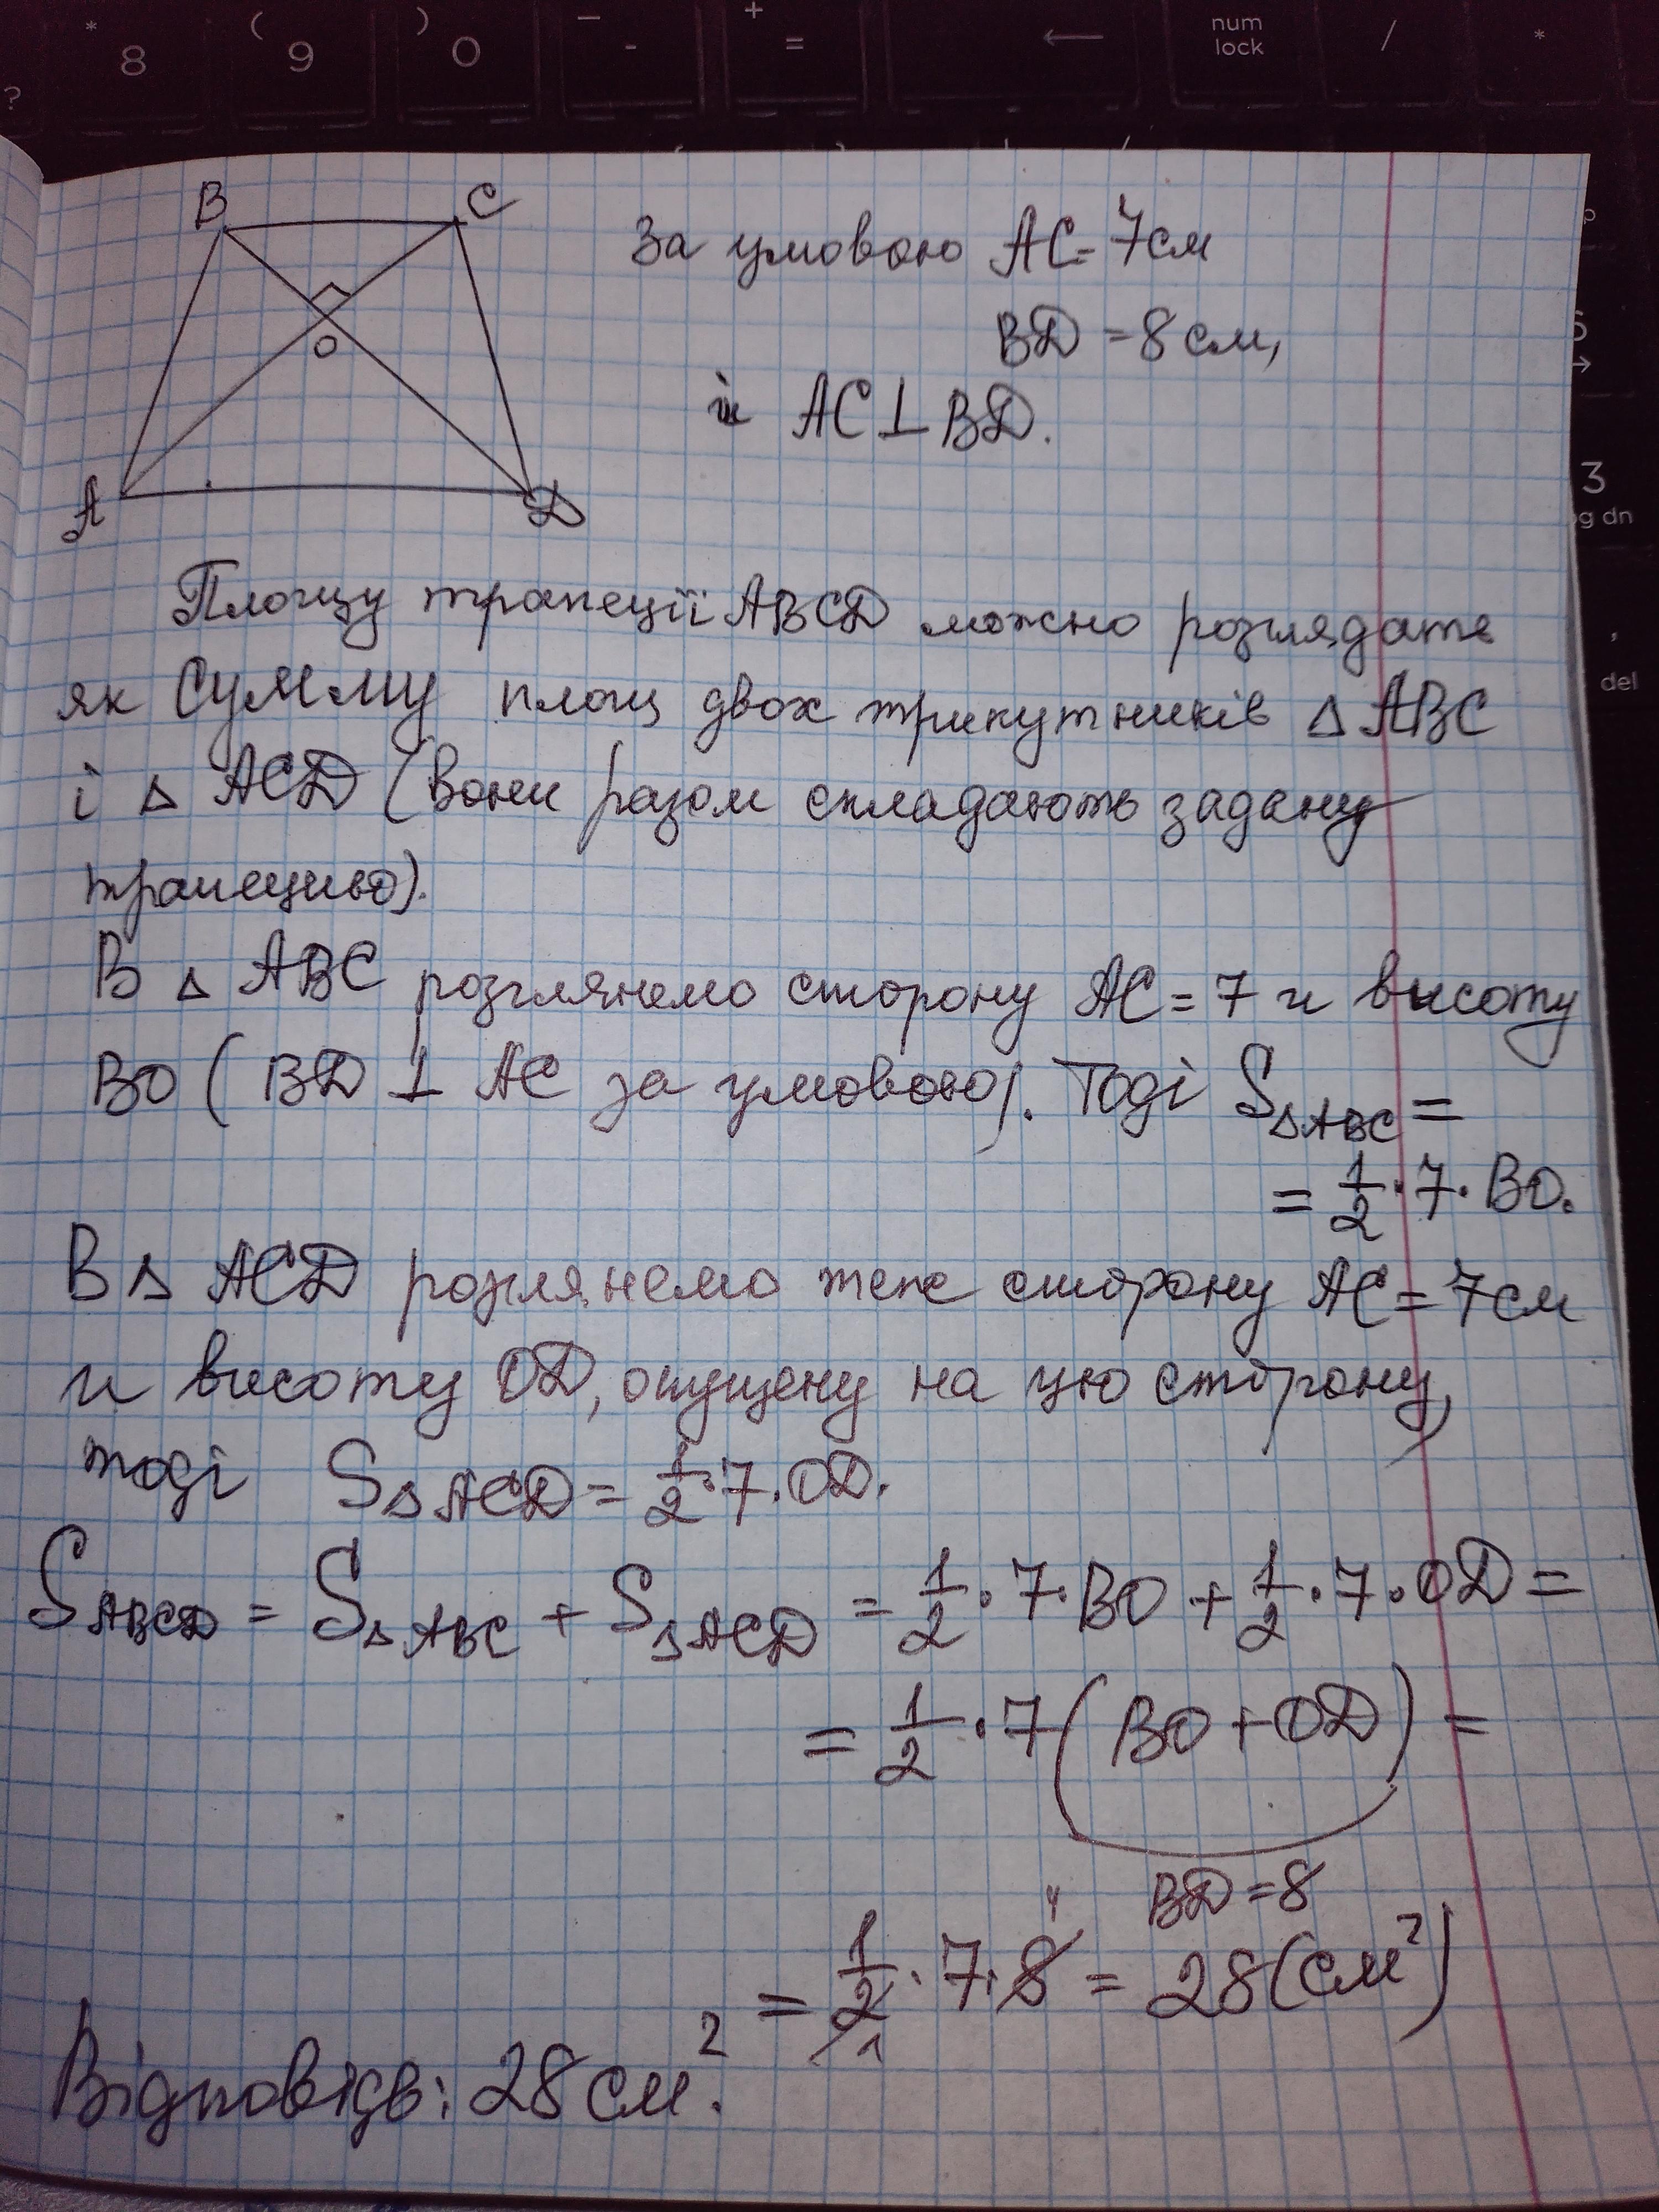 * 8 ( 9 ) 0 — - + = ← num lock / *
?
B C
За умовою AC = 7см
BD = 8 см,
O
і AC ⊥ BD.
A D
3
pg dn
Площу трапеції ABCD можно розглядати
як сумму площ двох трикутників △ ABC
del
і △ ACD (вони разом складають задану
трапецию).
В △ ABC розглянемо сторону AC = 7 и высоту
BO ( BD ⊥ AC за умовою). Тоді S△ABC =
= 1/2 · 7 · BO.
В △ ACD розглянемо теж сторону AC = 7см
и высоту OD, опущену на цю сторону,
тоді S△ACD = 1/2 · 7 · OD.
SABCD = S△ABC + S△ACD = 1/2 · 7 · BO + 1/2 · 7 · OD =
= 1/2 · 7 ( BO + OD ) =
BD = 8
4
= 1/2 · 7 · 8 = 28 (см²)
1
Відповідь: 28 см².